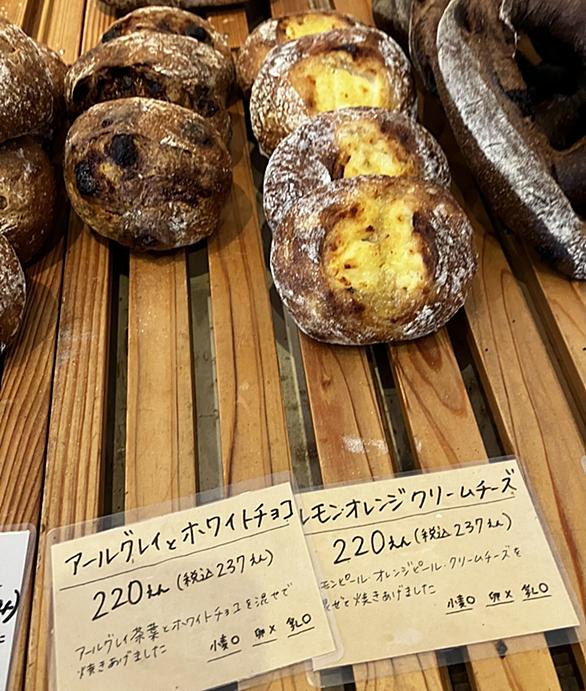 アールグレイとホワイトチョコ
220えん(税込237えん)
アールグレイ茶葉とホワイトチョコを混ぜて
焼きあげました
小麦○ 卵× 乳○
レモンオレンジクリームチーズ
220えん(税込237えん)
モンピール・オレンジピール・クリームチーズを
混ぜて焼きあげました
小麦○ 卵× 乳○